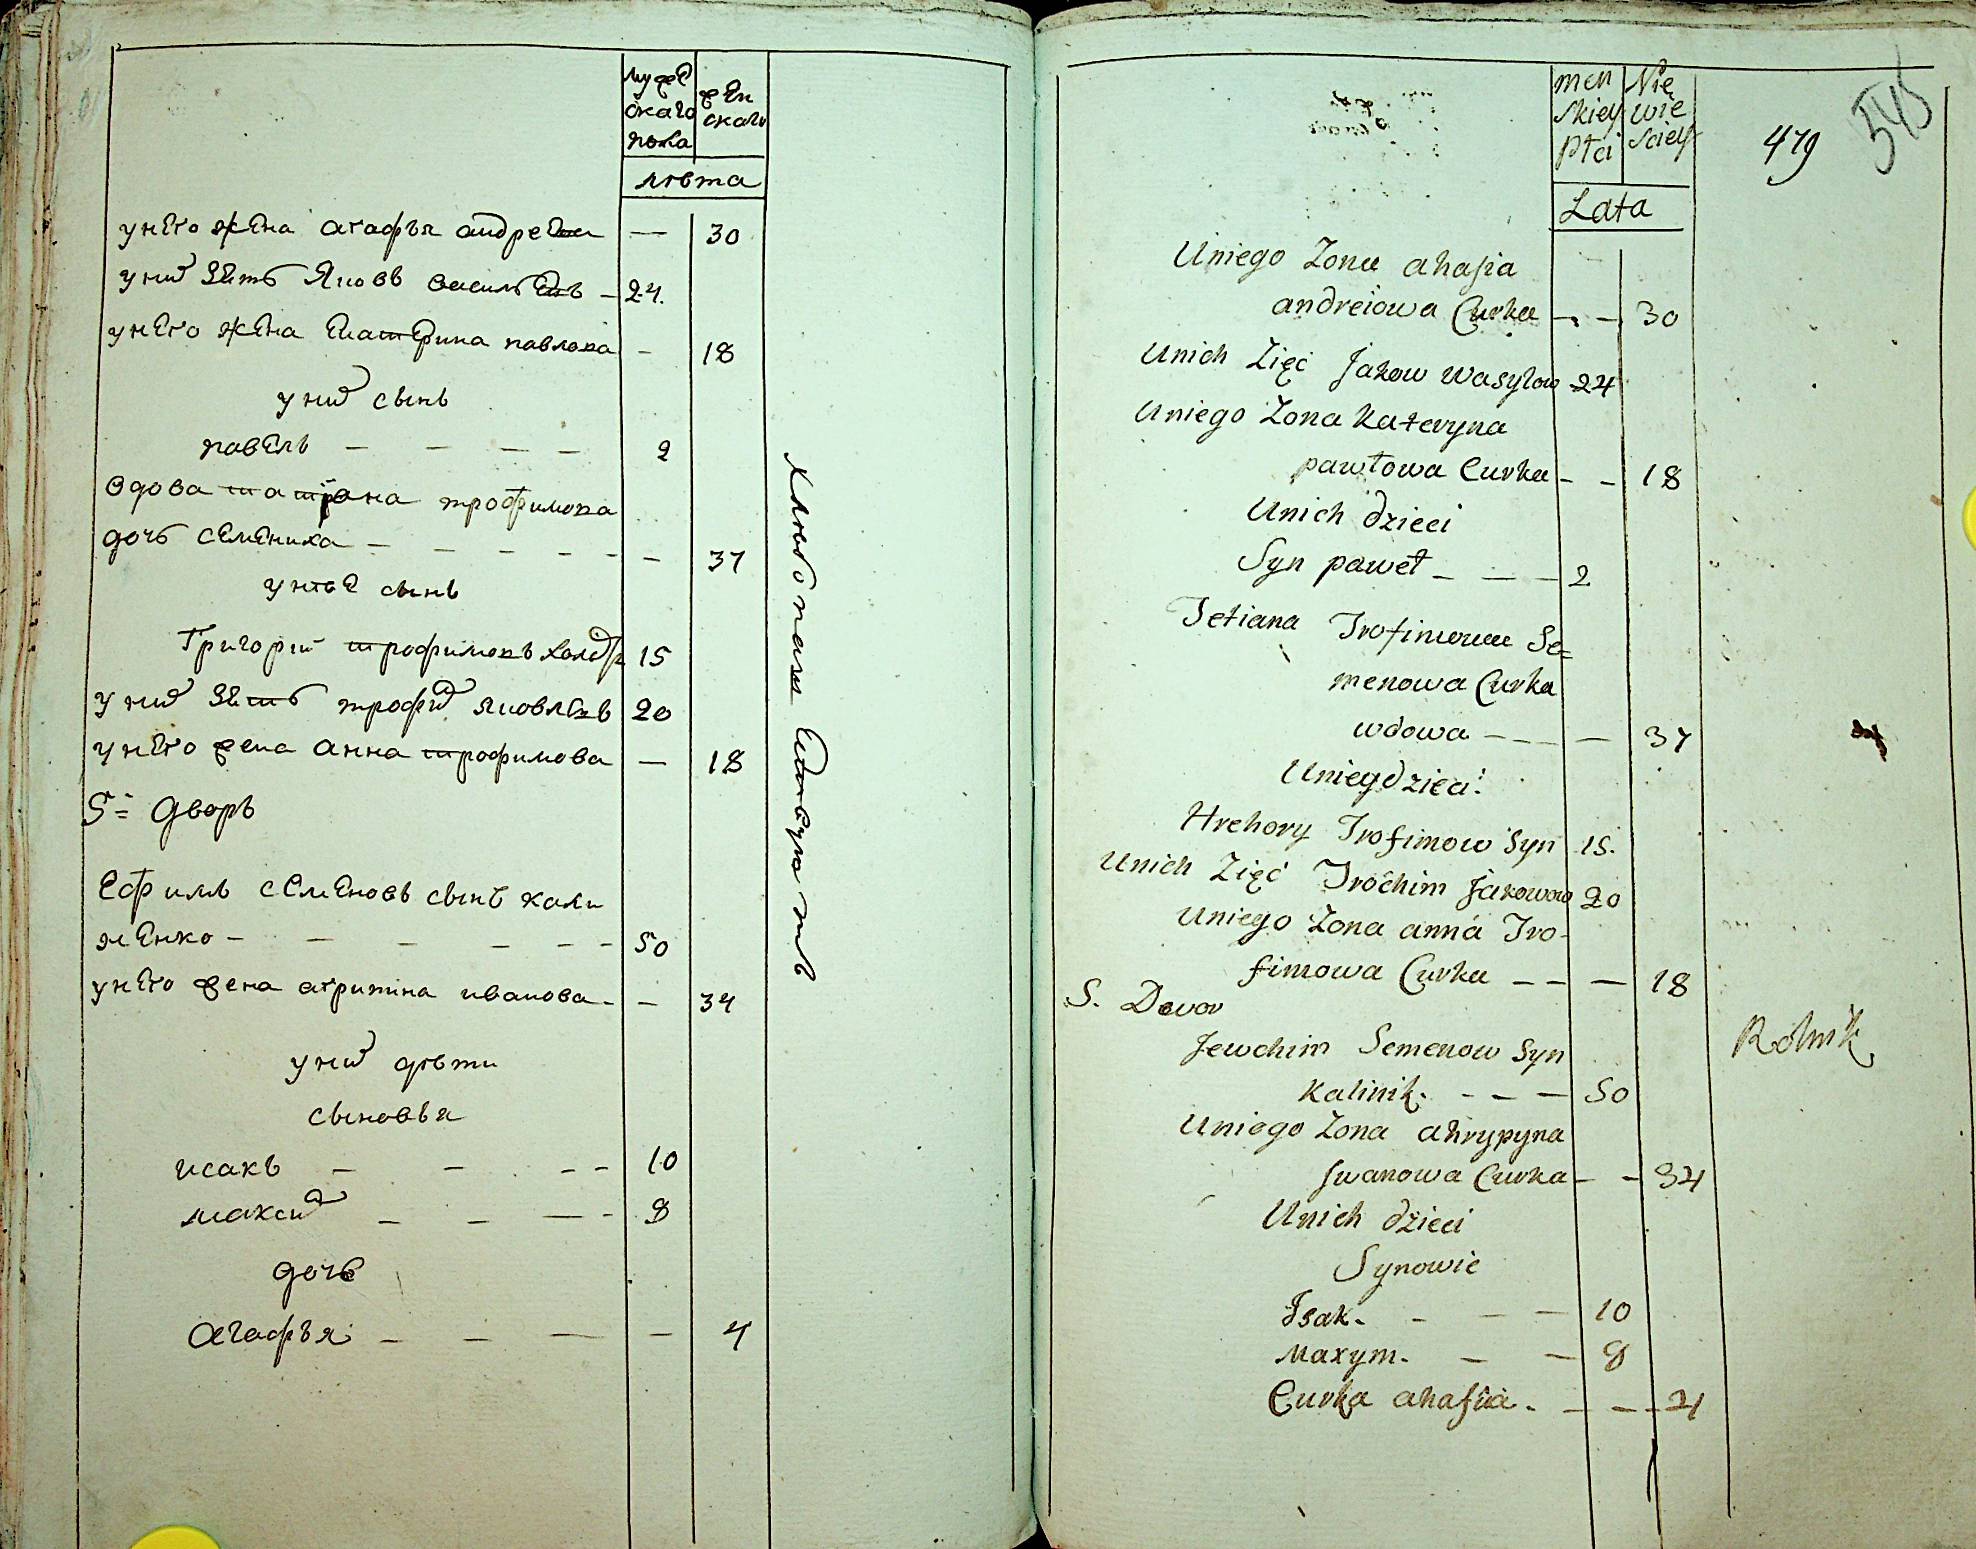 мужескаго пола
женскаго
лѣта
у него жена агафья андреева
— 30
у них зять Яковъ василѣевъ — 24.
у него жена Екатерина павлова
— 18
у них сынъ
павелъ — — — — 2
вдова татяна трофимова
дочь семениха — — — — — — 37
у нѣе сынъ
Григорій трофимовъ 15
у них зять трофим яковлевъ 20
у него жена анна трофимова — 18
5й дворъ
Ефимъ семеновъ сынъ кали
ненко — — — — — — 50
у него жена агрипина иванова — — 34
у них дѣти
сыновья
исакъ — — — — 10
максим — — — — 8
дочь
Агафья — — — — 4
хлѣбопашествуютъ
men
skiey
płci
Nie
wie
sciey
Lata
479
545
Uniego Zona ahafia
andreiowa Curka — — 30
Unich Zięć Jakow Wasylow 24
Uniego Zona Kateryna
pawłowa Curka — — 18
Unich dzieci
Syn paweł — — — 2
Tetiana Trofimowa Se=
menowa Curka
wdowa — — — — 37
Uniey dzieci:
Hrehory Trofimow Syn 15.
Unich Zięć Trochim Jakowow 20
Uniego Zona anna Tro-
fimowa Curka — — — 18
5. Dwor
Jewchim Semenow Syn
Kalinik. — — — 50
Rolnik
Uniego Zona ahrypyna
Jwanowa Curka — — 34
Unich dzieci
Synowie
Jsak. — — — 10
Maxym. — — 8
Curka ahafia. — — — 4